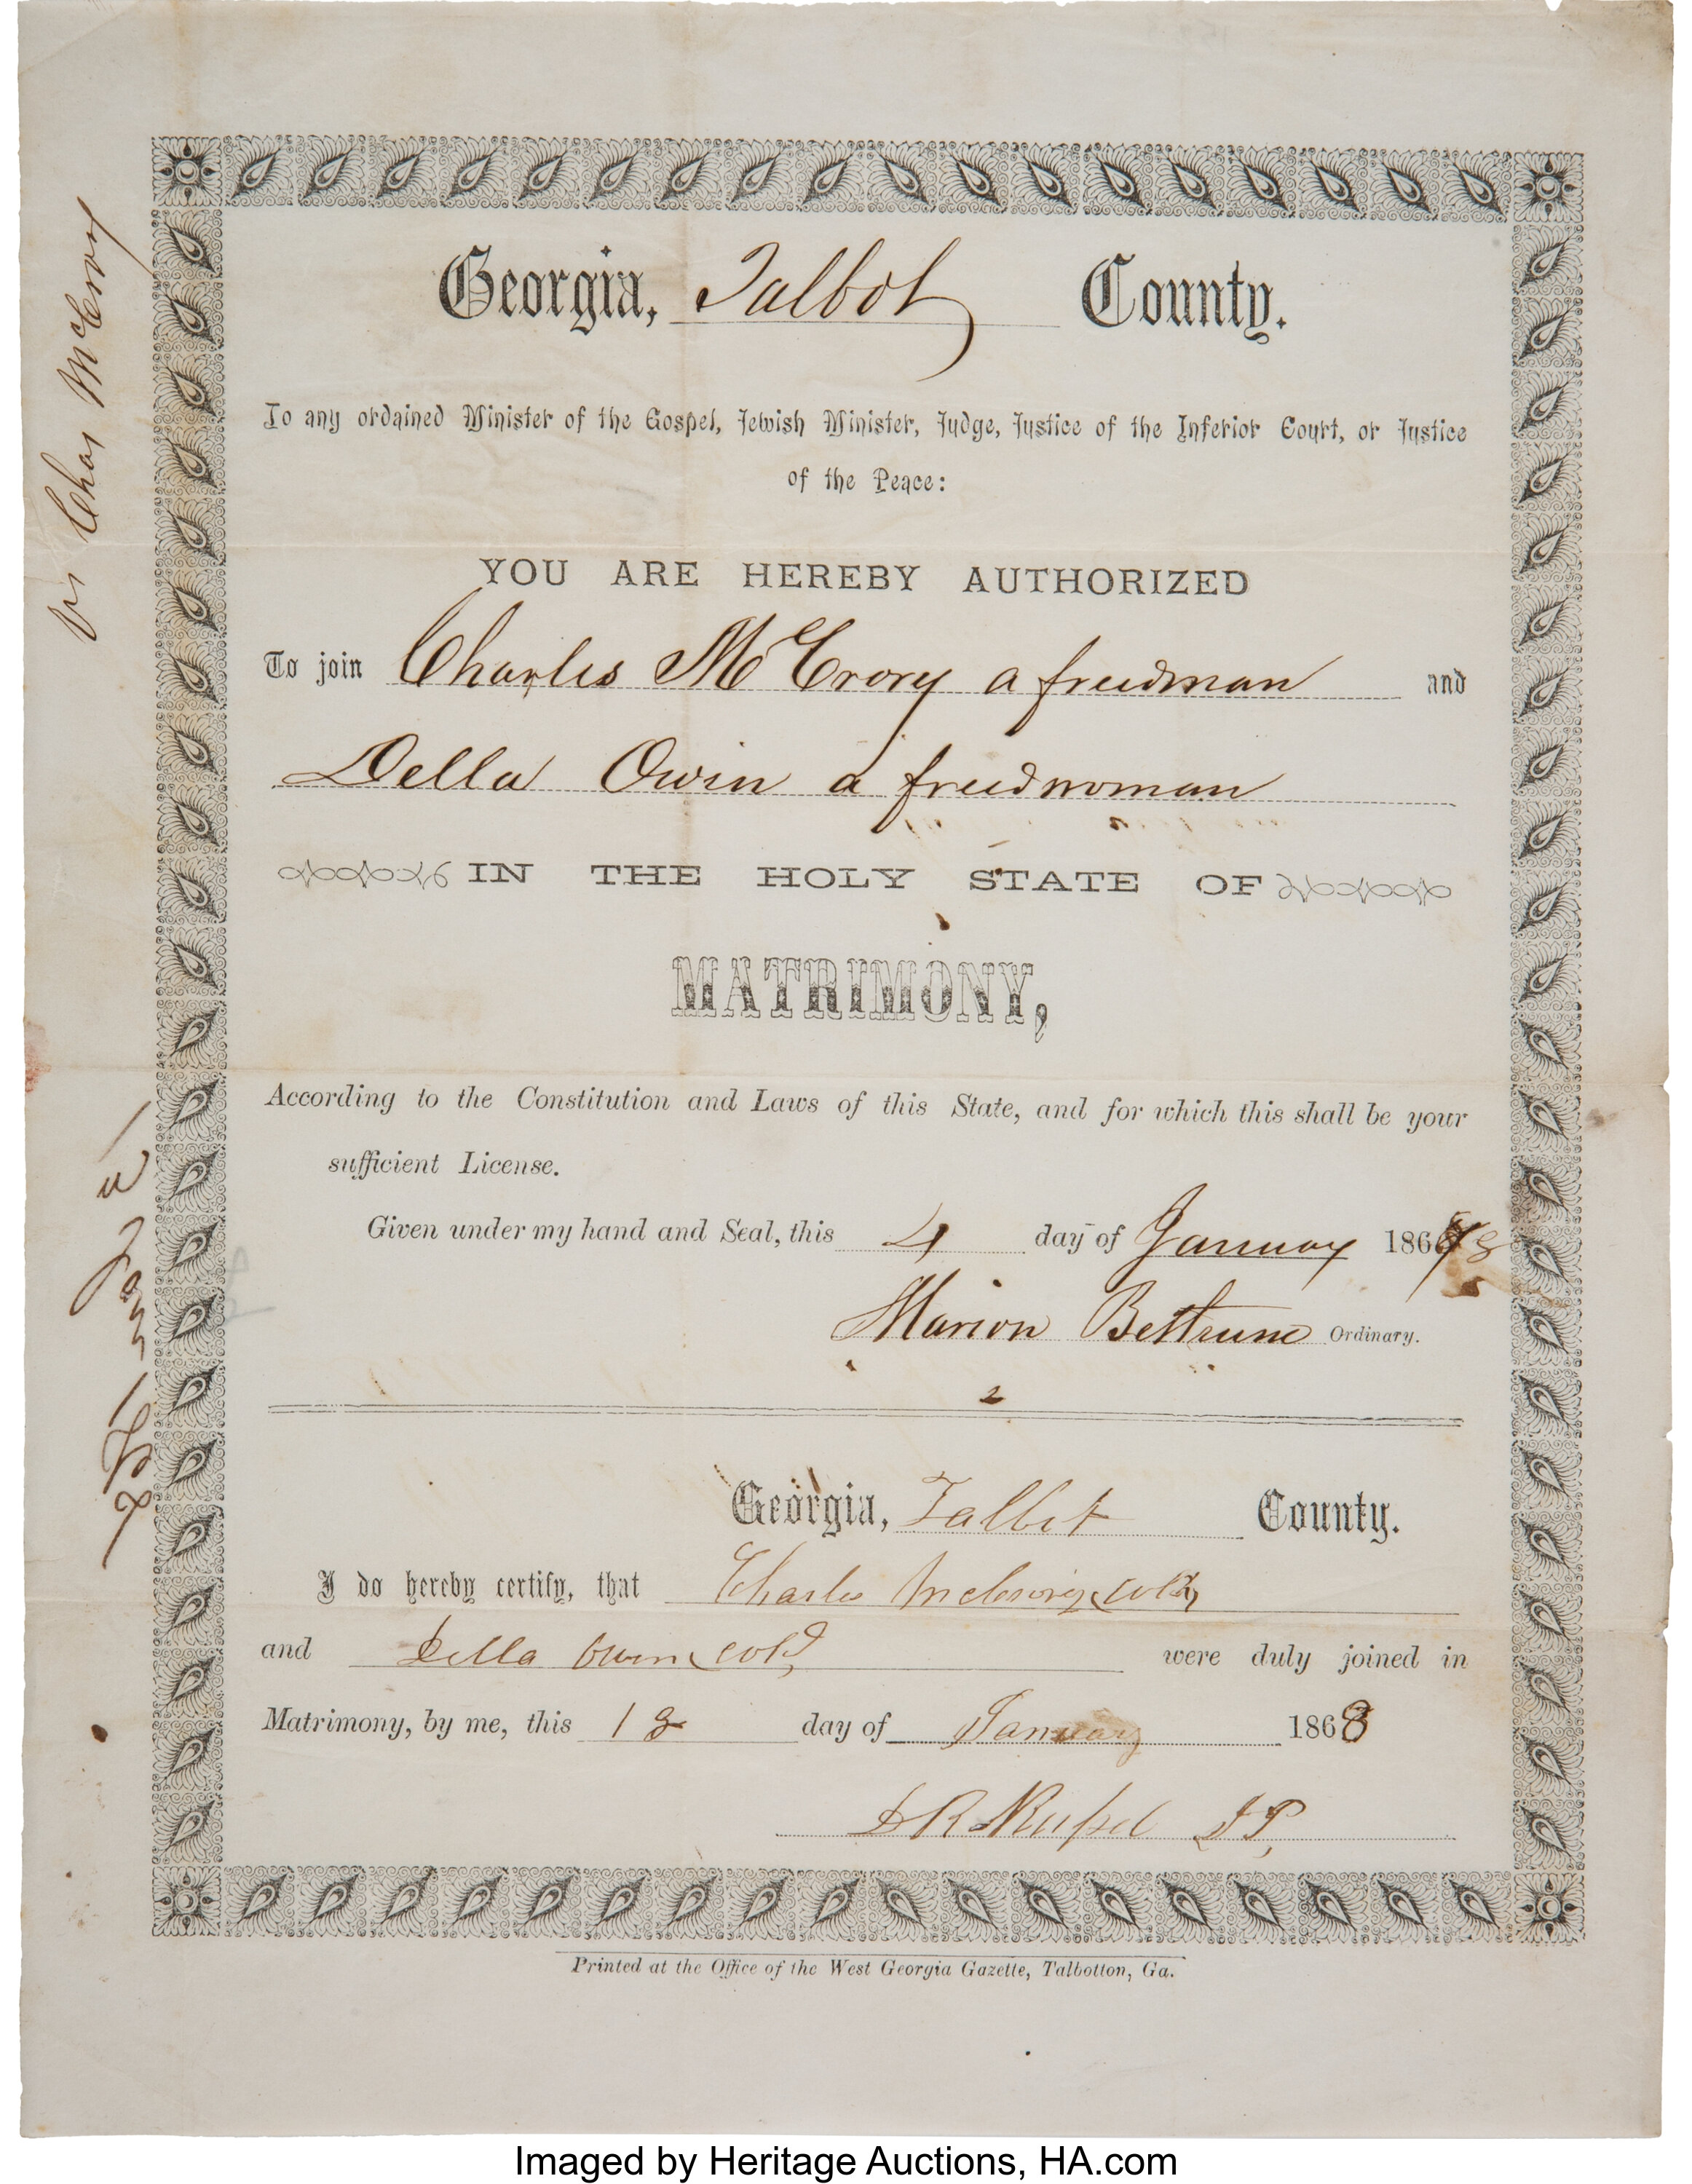 Georgia, Talbot County.
To any ordained Minister of the Gospel, Jewish Minister, Judge, Justice of the Inferior Court, or Justice
of the Peace:
YOU ARE HEREBY AUTHORIZED
To join Charles McCrory a freedman and
Della Owin a freedwoman
IN THE HOLY STATE OF
MATRIMONY,
According to the Constitution and Laws of this State, and for which this shall be your
sufficient License.
Given under my hand and Seal, this 4 day of January 186 8
Marion Bethune Ordinary.
Georgia, Talbot County.
I do hereby certify, that Charles McCrory, cold,
and Della Owin, cold, were duly joined in
Matrimony, by me, this 12 day of January 1868
D R Russel J P,
Printed at the Office of the West Georgia Gazette, Talbotton, Ga.
Chas McCrory
Imaged by Heritage Auctions, HA.com